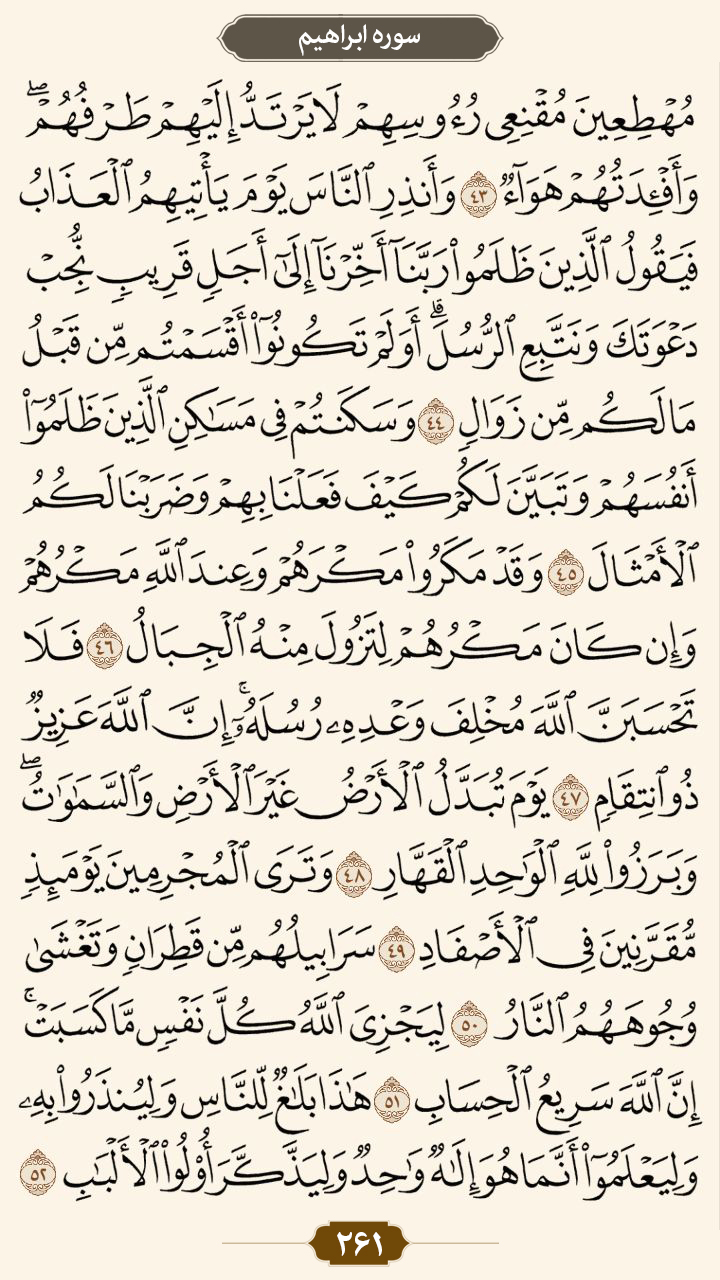 سوره ابراهیم
مُهْطِعِينَ مُقْنِعِى رُءُوسِهِمْ لَا يَرْتَدُّ إِلَيْهِمْ طَرْفُهُمْ ۖ
وَأَفْـِٔدَتُهُمْ هَوَآءٌ ٤٣ وَأَنذِرِ ٱلنَّاسَ يَوْمَ يَأْتِيهِمُ ٱلْعَذَابُ
فَيَقُولُ ٱلَّذِينَ ظَلَمُوا۟ رَبَّنَآ أَخِّرْنَآ إِلَىٰٓ أَجَلٍ قَرِيبٍ نُّجِبْ
دَعْوَتَكَ وَنَتَّبِعِ ٱلرُّسُلَ ۗ أَوَلَمْ تَكُونُوٓا۟ أَقْسَمْتُم مِّن قَبْلُ
مَا لَكُم مِّن زَوَالٍ ٤٤ وَسَكَنتُمْ فِى مَسَٰكِنِ ٱلَّذِينَ ظَلَمُوٓا۟
أَنفُسَهُمْ وَتَبَيَّنَ لَكُمْ كَيْفَ فَعَلْنَا بِهِمْ وَضَرَبْنَا لَكُمُ
ٱلْأَمْثَالَ ٤٥ وَقَدْ مَكَرُوا۟ مَكْرَهُمْ وَعِندَ ٱللَّهِ مَكْرُهُمْ
وَإِن كَانَ مَكْرُهُمْ لِتَزُولَ مِنْهُ ٱلْجِبَالُ ٤٦ فَلَا
تَحْسَبَنَّ ٱللَّهَ مُخْلِفَ وَعْدِهِۦ رُسُلَهُۥٓ ۚ إِنَّ ٱللَّهَ عَزِيزٌ
ذُو ٱنتِقَامٍ ٤٧ يَوْمَ تُبَدَّلُ ٱلْأَرْضُ غَيْرَ ٱلْأَرْضِ وَٱلسَّمَٰوَٰتُ ۖ
وَبَرَزُوا۟ لِلَّهِ ٱلْوَٰحِدِ ٱلْقَهَّارِ ٤٨ وَتَرَى ٱلْمُجْرِمِينَ يَوْمَئِذٍ
مُّقَرَّنِينَ فِى ٱلْأَصْفَادِ ٤٩ سَرَابِيلُهُم مِّن قَطِرَانٍ وَتَغْشَىٰ
وُجُوهَهُمُ ٱلنَّارُ ٥٠ لِيَجْزِىَ ٱللَّهُ كُلَّ نَفْسٍ مَّا كَسَبَتْ ۚ
إِنَّ ٱللَّهَ سَرِيعُ ٱلْحِسَابِ ٥١ هَٰذَا بَلَٰغٌ لِّلنَّاسِ وَلِيُنذَرُوا۟ بِهِۦ
وَلِيَعْلَمُوٓا۟ أَنَّمَا هُوَ إِلَٰهٌ وَٰحِدٌ وَلِيَذَّكَّرَ أُو۟لُوا۟ ٱلْأَلْبَٰبِ ٥٢
۲۶۱